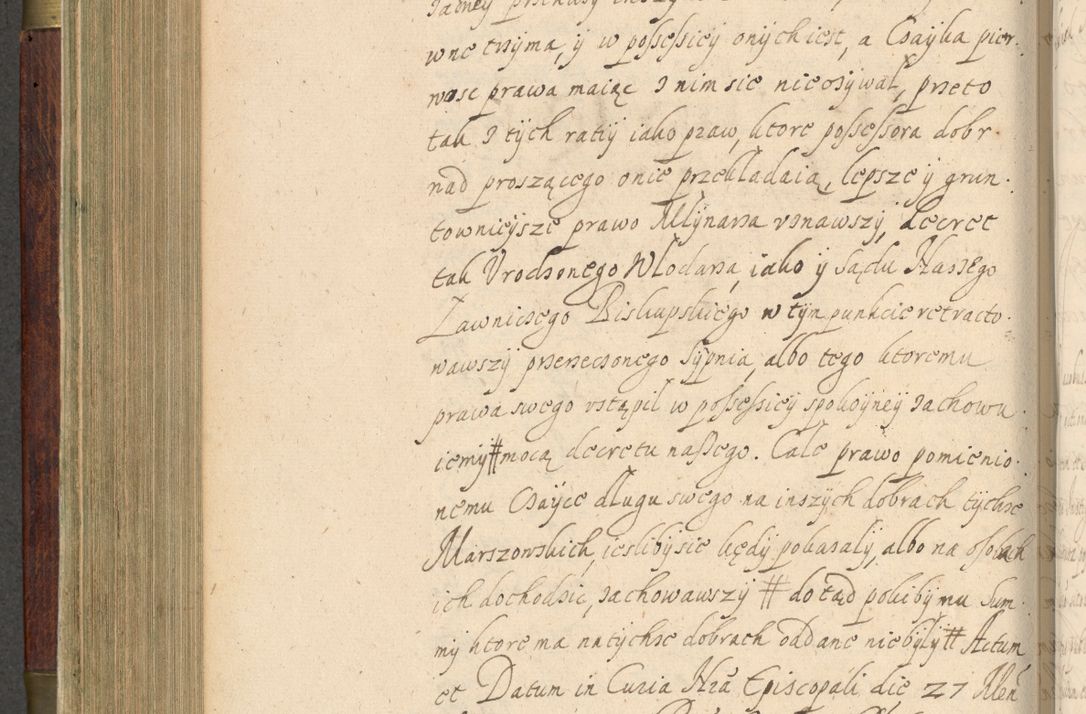 żadney przekazy inszy
wne trzyma, y w possessiey onych iest, a Czayka pier-
wsze prawa maiąc z nim sie nieozywał, przeto
tak z tych ratiy iako praw, ktore possessora dobr
nad proszącego onie przekładaią, lepsze y grun-
townieysze prawo Młynarza uznawszy, decret
tak Urodzonego Włodarza, iako y sądu Naszego
Ławniczego Biskupskiego w tym punkcie retracto-
wawszy przerzeczonego Sypnia, albo tego ktoremu
prawa swego ustąpił w possessiey spokoyney zachowu-
iemy # mocą decretu naszego. Cale prawo pomienio-
nemu Czayce długu swego na inszych dobrach tychże
Marszowskich, iesliby sie kędy pokazały, albo na osobach
ich dochodzic, zachowawszy # dotąd pokiby mu Sum-
my ktore ma na tychże dobrach oddane nie były # Actum
et Datum in Curia Nra Episcopali die 27 Men